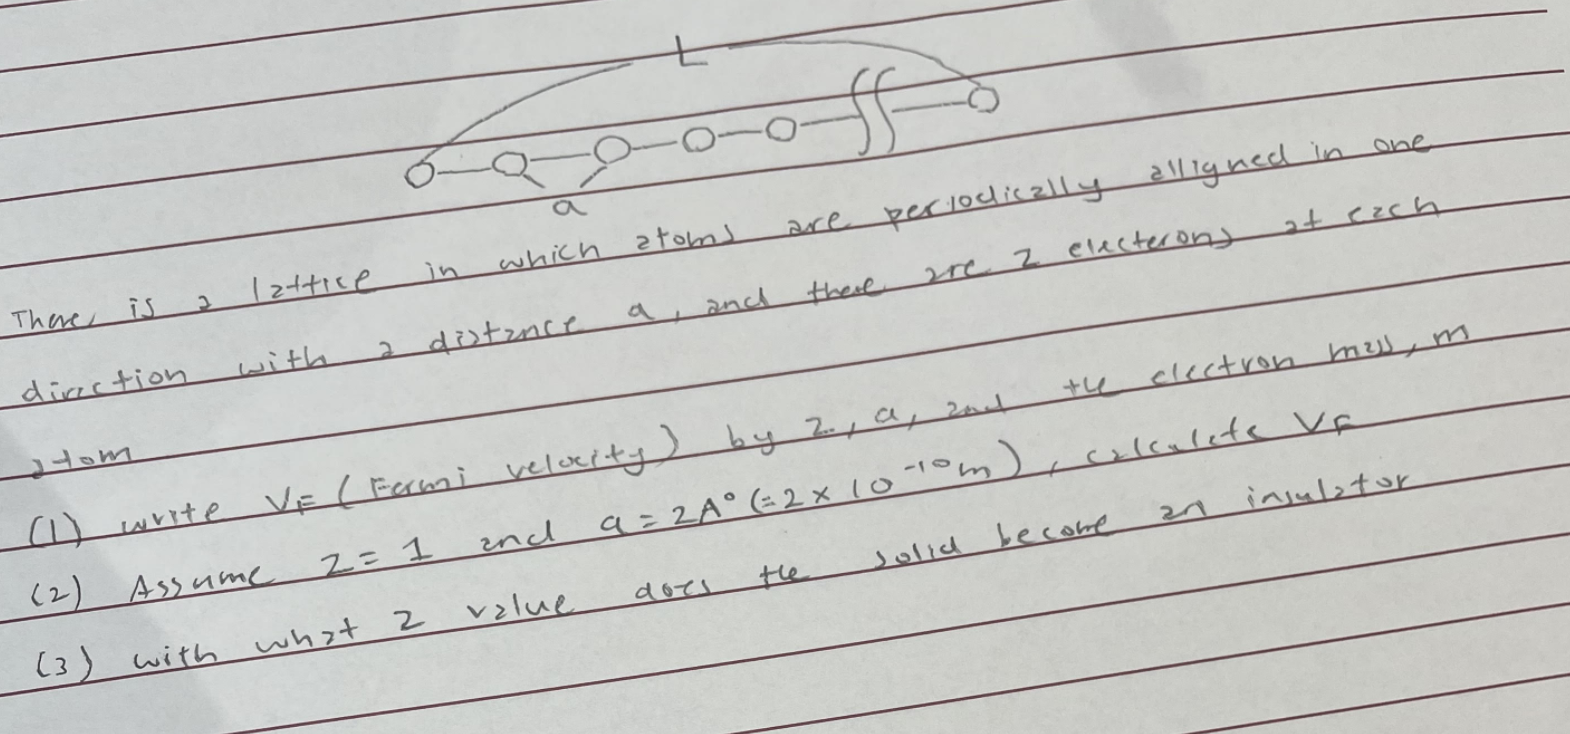 L
a
There is a lattice in which atoms are periodically alligned in one
direction with a distance a, and there are z electerons at each
atom
(1) write VF (Fermi velocity) by z, a, and the electron mass, m
(2) Assume z = 1 and a = 2A° (= 2 × 10⁻¹⁰m), calculate VF
(3) with what z value does the solid become an insulator